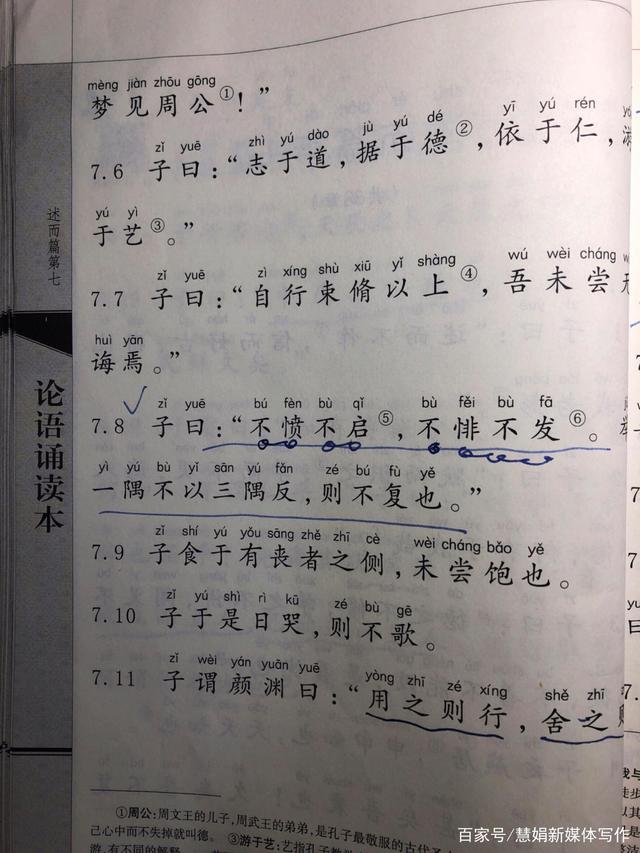 mèng jiàn zhōu gōng
梦见周公①！”
zǐ yuē zhì yú dào jù yú dé yī yú rén
7.6 子曰：“志于道，据于德②，依于仁，游
yú yì
于艺③。”
zǐ yuē zì xíng shù xiū yǐ shàng wú wèi cháng
7.7 子曰：“自行束脩以上④，吾未尝无
huì yān
诲焉。”
zǐ yuē bú fèn bù qǐ bù fěi bù fā
7.8 子曰：“不愤不启⑤，不悱不发⑥。举
yì yú bù yǐ sān yú fǎn zé bú fù yě
一隅不以三隅反，则不复也。”
zǐ shí yú yǒu sāng zhě zhī cè wèi cháng bǎo yě
7.9 子食于有丧者之侧，未尝饱也。
zǐ yú shì rì kū zé bù gē
7.10 子于是日哭，则不歌。
zǐ wèi yán yuān yuē yòng zhī zé xíng shě zhī
7.11 子谓颜渊曰：“用之则行，舍之则
①周公：周文王的儿子，周武王的弟弟，是孔子最敬服的古代圣人
己心中而不失掉就叫德。 ③游于艺：艺指孔子教
游，有不同的解释。
述而篇第七
论语诵读本
百家号/慧娟新媒体写作